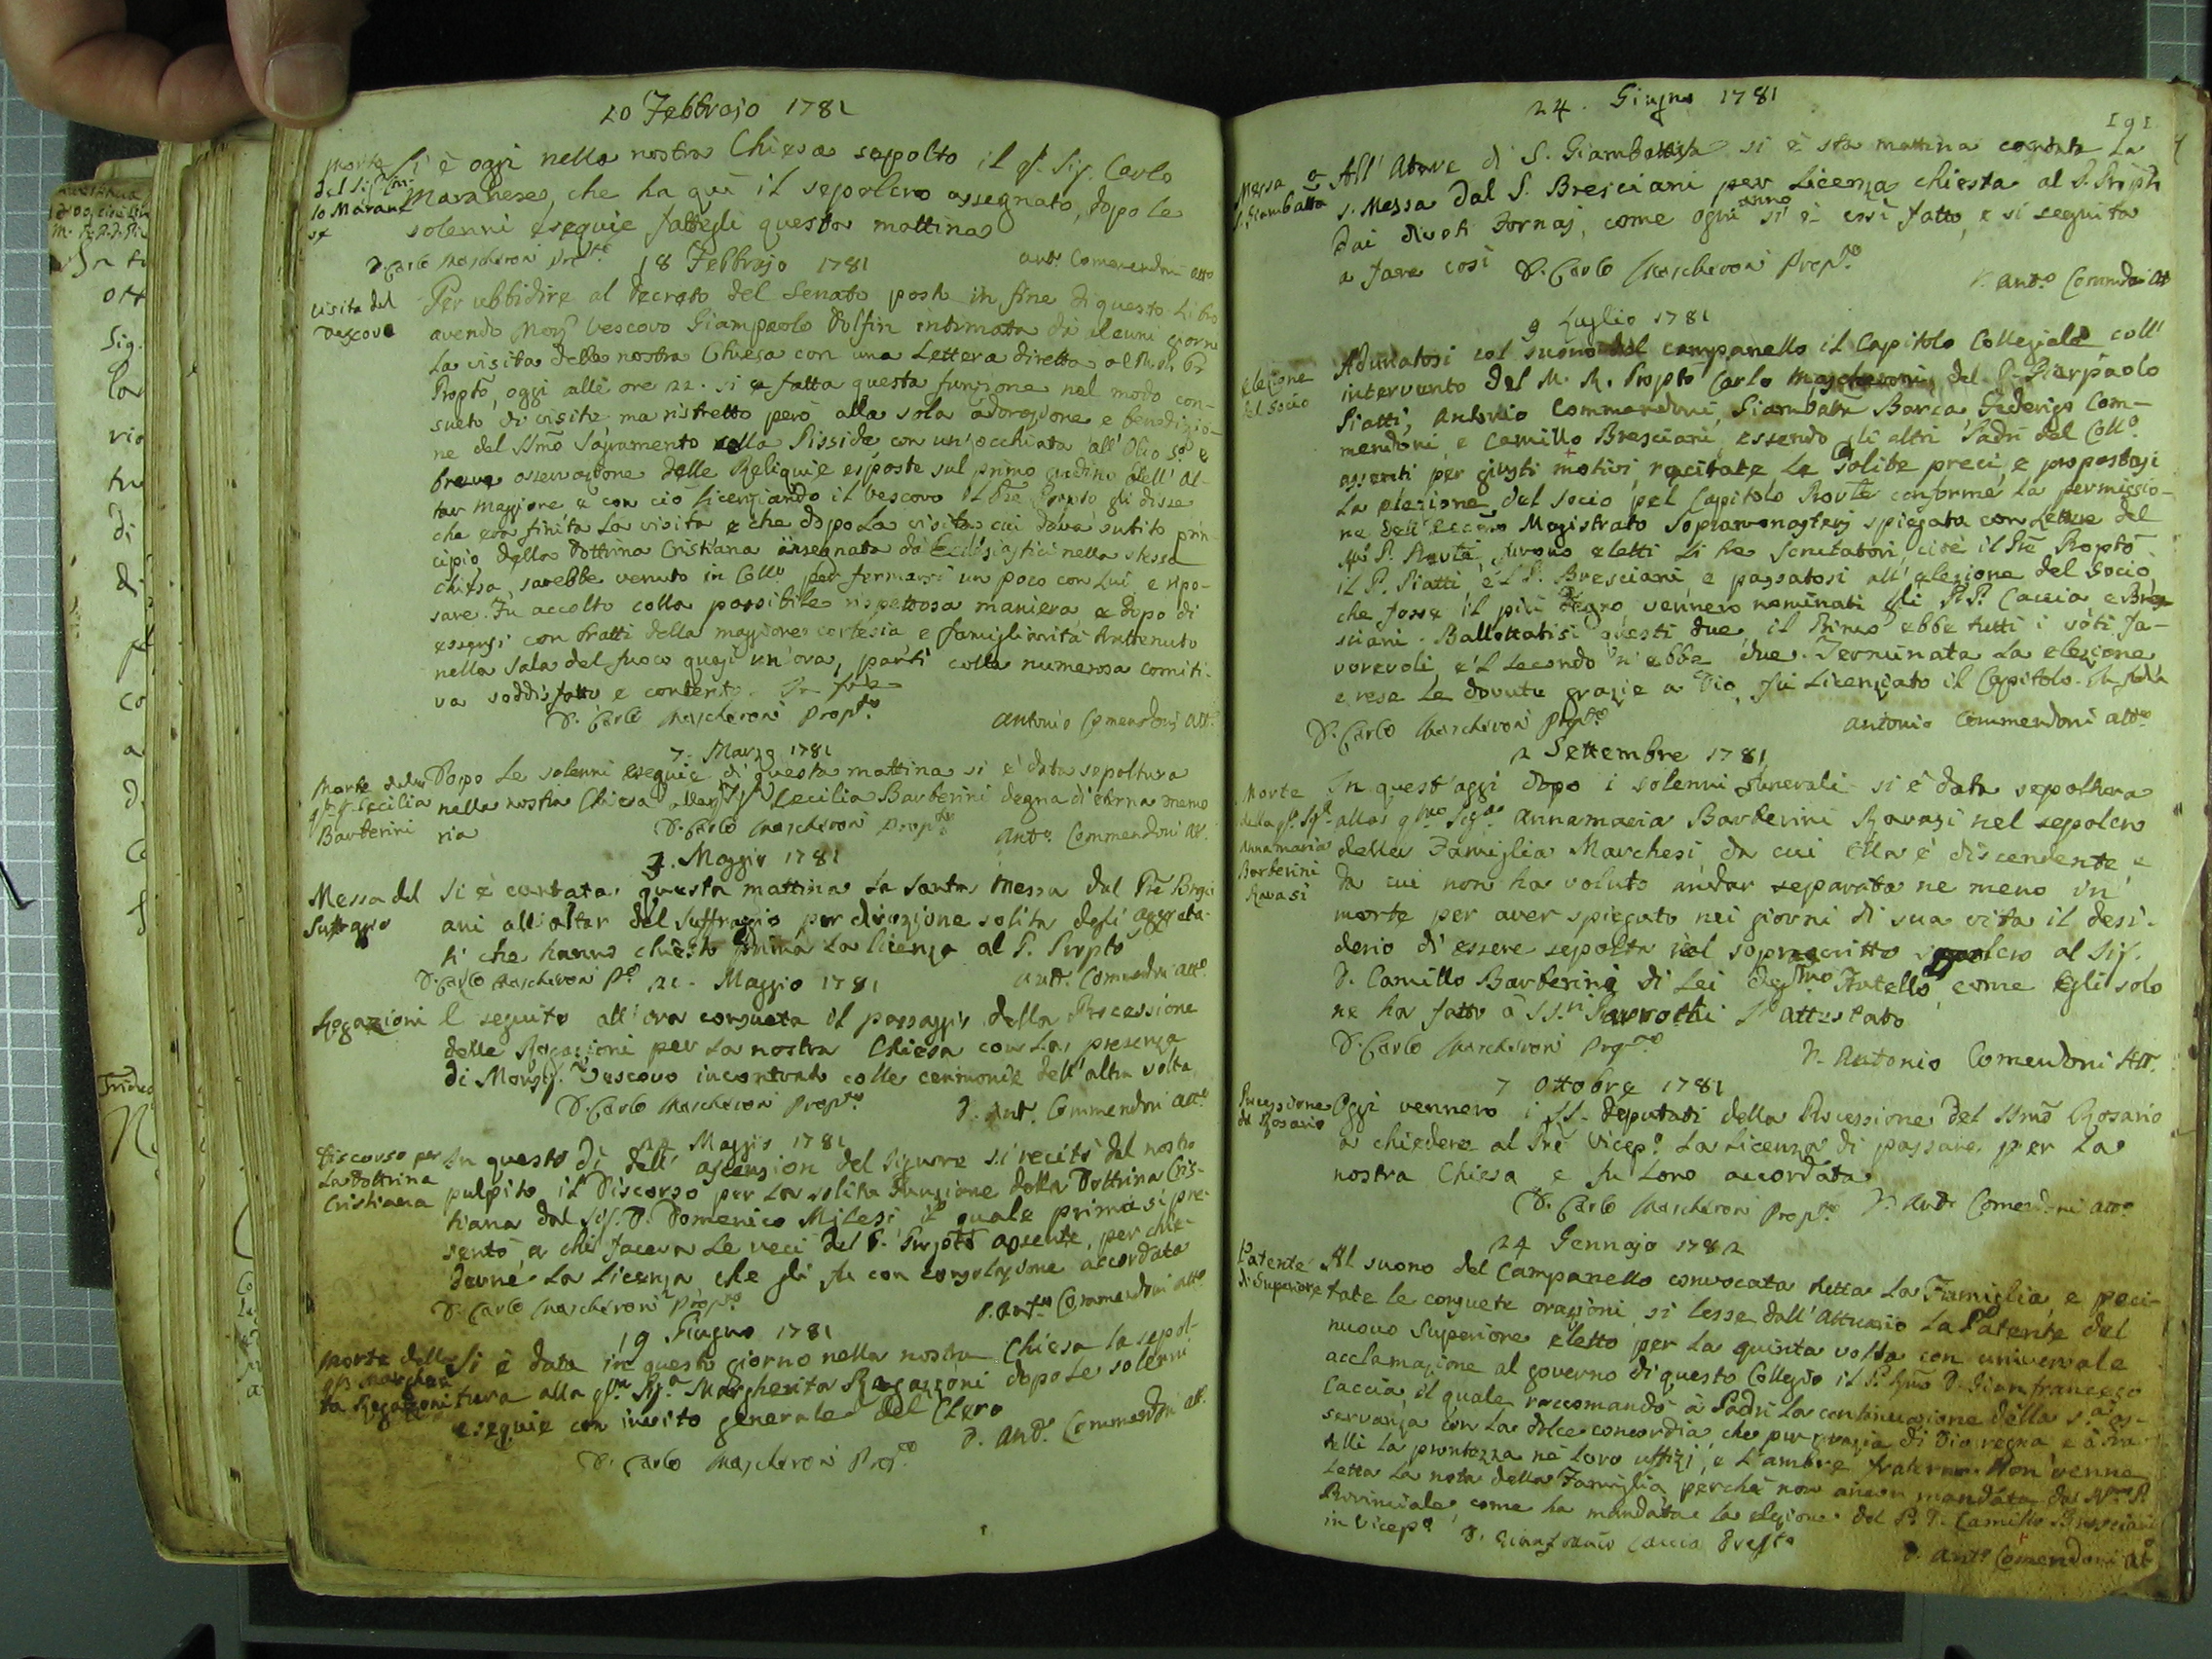 10 Febbrajo 1781
Morte del Sig. Carlo Maranese
Si è oggi nella nostra Chiesa sepolto il q. Sig. Carlo
Maranese, che ha quì il sepolcro assegnato, dopo le
solenni esequie fattegli questa mattina
D. Carlo Mascheroni Propto
Anto. Comendoni Atto
18 Febbrajo 1781
Visita del Vescovo
Per ubbidire al Decreto del Senato posto in fine di questo Libro
avendo Monsr Vescovo Giampaolo Dolfin intimata da alcuni giorni
la visita della nostra Chiesa con una Lettera diretta al
Propto, oggi alle ore 22. si è fatta questa funzione nel modo con-
sueto di visite ma ristretto però alla sola adorazione e benedizio-
ne del SSmo Sagramento nella Pisside con un'occhiata all'Olio So e
breve osservazione delle Reliquie esposte sul primo gradino dell'Al-
tar Maggiore e con ciò licenziando il Vescovo il Pre Propto gli disse
che era finita la visita e che dopo la visita cui dava subito prin
cipio della Dottrina Cristiana insegnata da Ecclesiastici nella stessa
chiesa, sarebbe venuto in Collo per fermarsi un poco con lui e ripo-
sare. Fu accolto colla possibile rispettosa maniera e dopo di
essersi con tratti della maggiore cortesia e famigliarità trattenuto
nella sala del fuoco quasi un'ora, partì colla numerosa comiti-
va soddisfatto e contento. In fede
D. Carlo Mascheroni Propto
Antonio Comendoni Atto
7. Marzo 1781
Morte della q. Cecilia Barberini
Dopo le solenni esequie di questa mattina si è data sepoltura
nella nostra Chiesa alla Cecilia Barberini degna di eterna memo
ria
D. Carlo Mascheroni Propto
Anto. Commendoni At.
3. Maggio 1781
Messa del Suffragio
Si è cantata questa mattina la santa Messa dal Pre Bresci
ani all'altar del Suffragio per divozione solita degli aggrega-
ti che hanno chiesto prima la licenza al P. Propto
D. Carlo Mascheroni Po
Anto. Comendoni Atto
21. Maggio 1781
Rogazioni
È seguito all'ora consueta il passaggio della Processione
delle Rogazioni per la nostra Chiesa con la presenza
di Monsig. Vescovo incontrato colle cerimonie dell'altra volta
D. Carlo Mascheroni Propto
D. Ant. Commendoni Atto
24 Maggio 1781
Discorso per la Dottrina Cristiana
In questo dì dell'ascension del Signore si recitò dal nostro
pulpito il Discorso per la solita funzione della Dottrina Cris-
tiana dal Sig. D. Domenico Milesi, il quale prima si pre-
sentò a chi faceva le veci del P. Propto assente, per chie-
derne la licenza, che gli fu con consolazione accordata
D. Carlo Mascheroni Propto
D. Anto Commendoni Atto
19 Giugno 1781
Morte della q. Margherita Regazzoni
Si è data in questo giorno nella nostra Chiesa la sepol-
tura alla qm Siga Margherita Ragazzoni dopo le solenni
esequie con invito generale del Clero
D. Carlo Mascheroni Propto
D. Anto. Commendoni Att.
24. Giugno 1781
191
Messa a S. Giambatta
All'Altare di S. Giambattista si è sta mattina cantata la
S. Messa dal P. Bresciani per licenza chiesta al P. Propto
dai divoti Fornaj, come ogni anno si è così fatto, e si seguita
a fare così
D. Carlo Mascheroni Propto
D. Anto. Comendoni Att
9 Luglio 1781
Elezione del Socio
Adunatosi col suono del campanello il Capitolo Collegiale coll'
intervento del M. R. Propto Carlo Mascheroni, del P. Giarpaolo
Piatti, Antonio Commendoni, Giambatta Barca, Federigo Com-
mendoni, e Camillo Bresciani, essendo gli altri Padri del Collo
assenti per giusti motivi, recitate le solite preci, e propostasi
la elezione del socio pel Capitolo Provle conforme la permissio-
ne dell'Eccmo Magistrato Sopramonasterj spiegata con lettere del
P. Provle, furono eletti li tre scrutatori, cioè il Pre Propto
il P. Piatti, e'l P. Bresciani e passatosi all'elezione del Socio,
che fosse il più degno vennero nominati gli P.P. Caccia e Bre
sciani. Ballottatisi questi due, il Primo ebbe tutti i voti fa-
vorevoli, e'l secondo n'ebbe due. Terminata la elezione
e rese le dovute grazie a Dio, fu licenziato il Capitolo. In fede
D. Carlo Mascheroni Propto
Antonio Commendoni Atto
2 Settembre 1781
Morte della q. Siga Annamaria Barberini Ravasi
In quest'oggi dopo i solenni funerali si è data sepoltura
alla Siga Annamaria Barberini Ravasi nel sepolcro
della Famiglia Marchesi, da cui ella è discendente, e
da cui non ha voluto andar separata ne meno in
morte per aver spiegato nei giorni di sua vita il desi-
derio di essere sepolta nel soprascritto sepolcro al Sig.
D. Camillo Barberini di lei degmo Fratello, come Egli solo
ne ha fatto a SS.ri Parrochi l'attestato
D. Carlo Mascheroni Propto
D. Antonio Comendoni Att.
7 Ottobre 1781
Processione del Rosario
Oggi vennero i SS. Deputati della Processione del SSmo Rosario
a chiedere al Pre Vicepo la licenza di passare per la
nostra Chiesa e fu loro accordata
D. Carlo Mascheroni Propto
D. Anto Comendoni Atto
24 Gennajo 1782
Patente di Superiore
Al suono del Campanello convocata tutta la Famiglia, e reci-
tate le consuete orazioni, si lesse dall'Attuario la Patente del
nuovo Superiore eletto per la quinta volta con universale
acclamazione al governo di questo Collegio il P. D. Gianfrancesco
Caccia, il quale raccomandò a Padri la continuazione della s.a os-
servanza con la dolce concordia, che per grazia di Dio regna e a Fra-
telli la prontezza ne loro uffizi, e l'amore fraterno. Non venne
letta la nota della Famiglia perchè non ancora mandata dal P.
Provinciale, come ha mandata la elezione del P. D. Camillo Bresciani
in Vicepo
D. Gianfranco Caccia Prepto
D. Anto Comendoni At